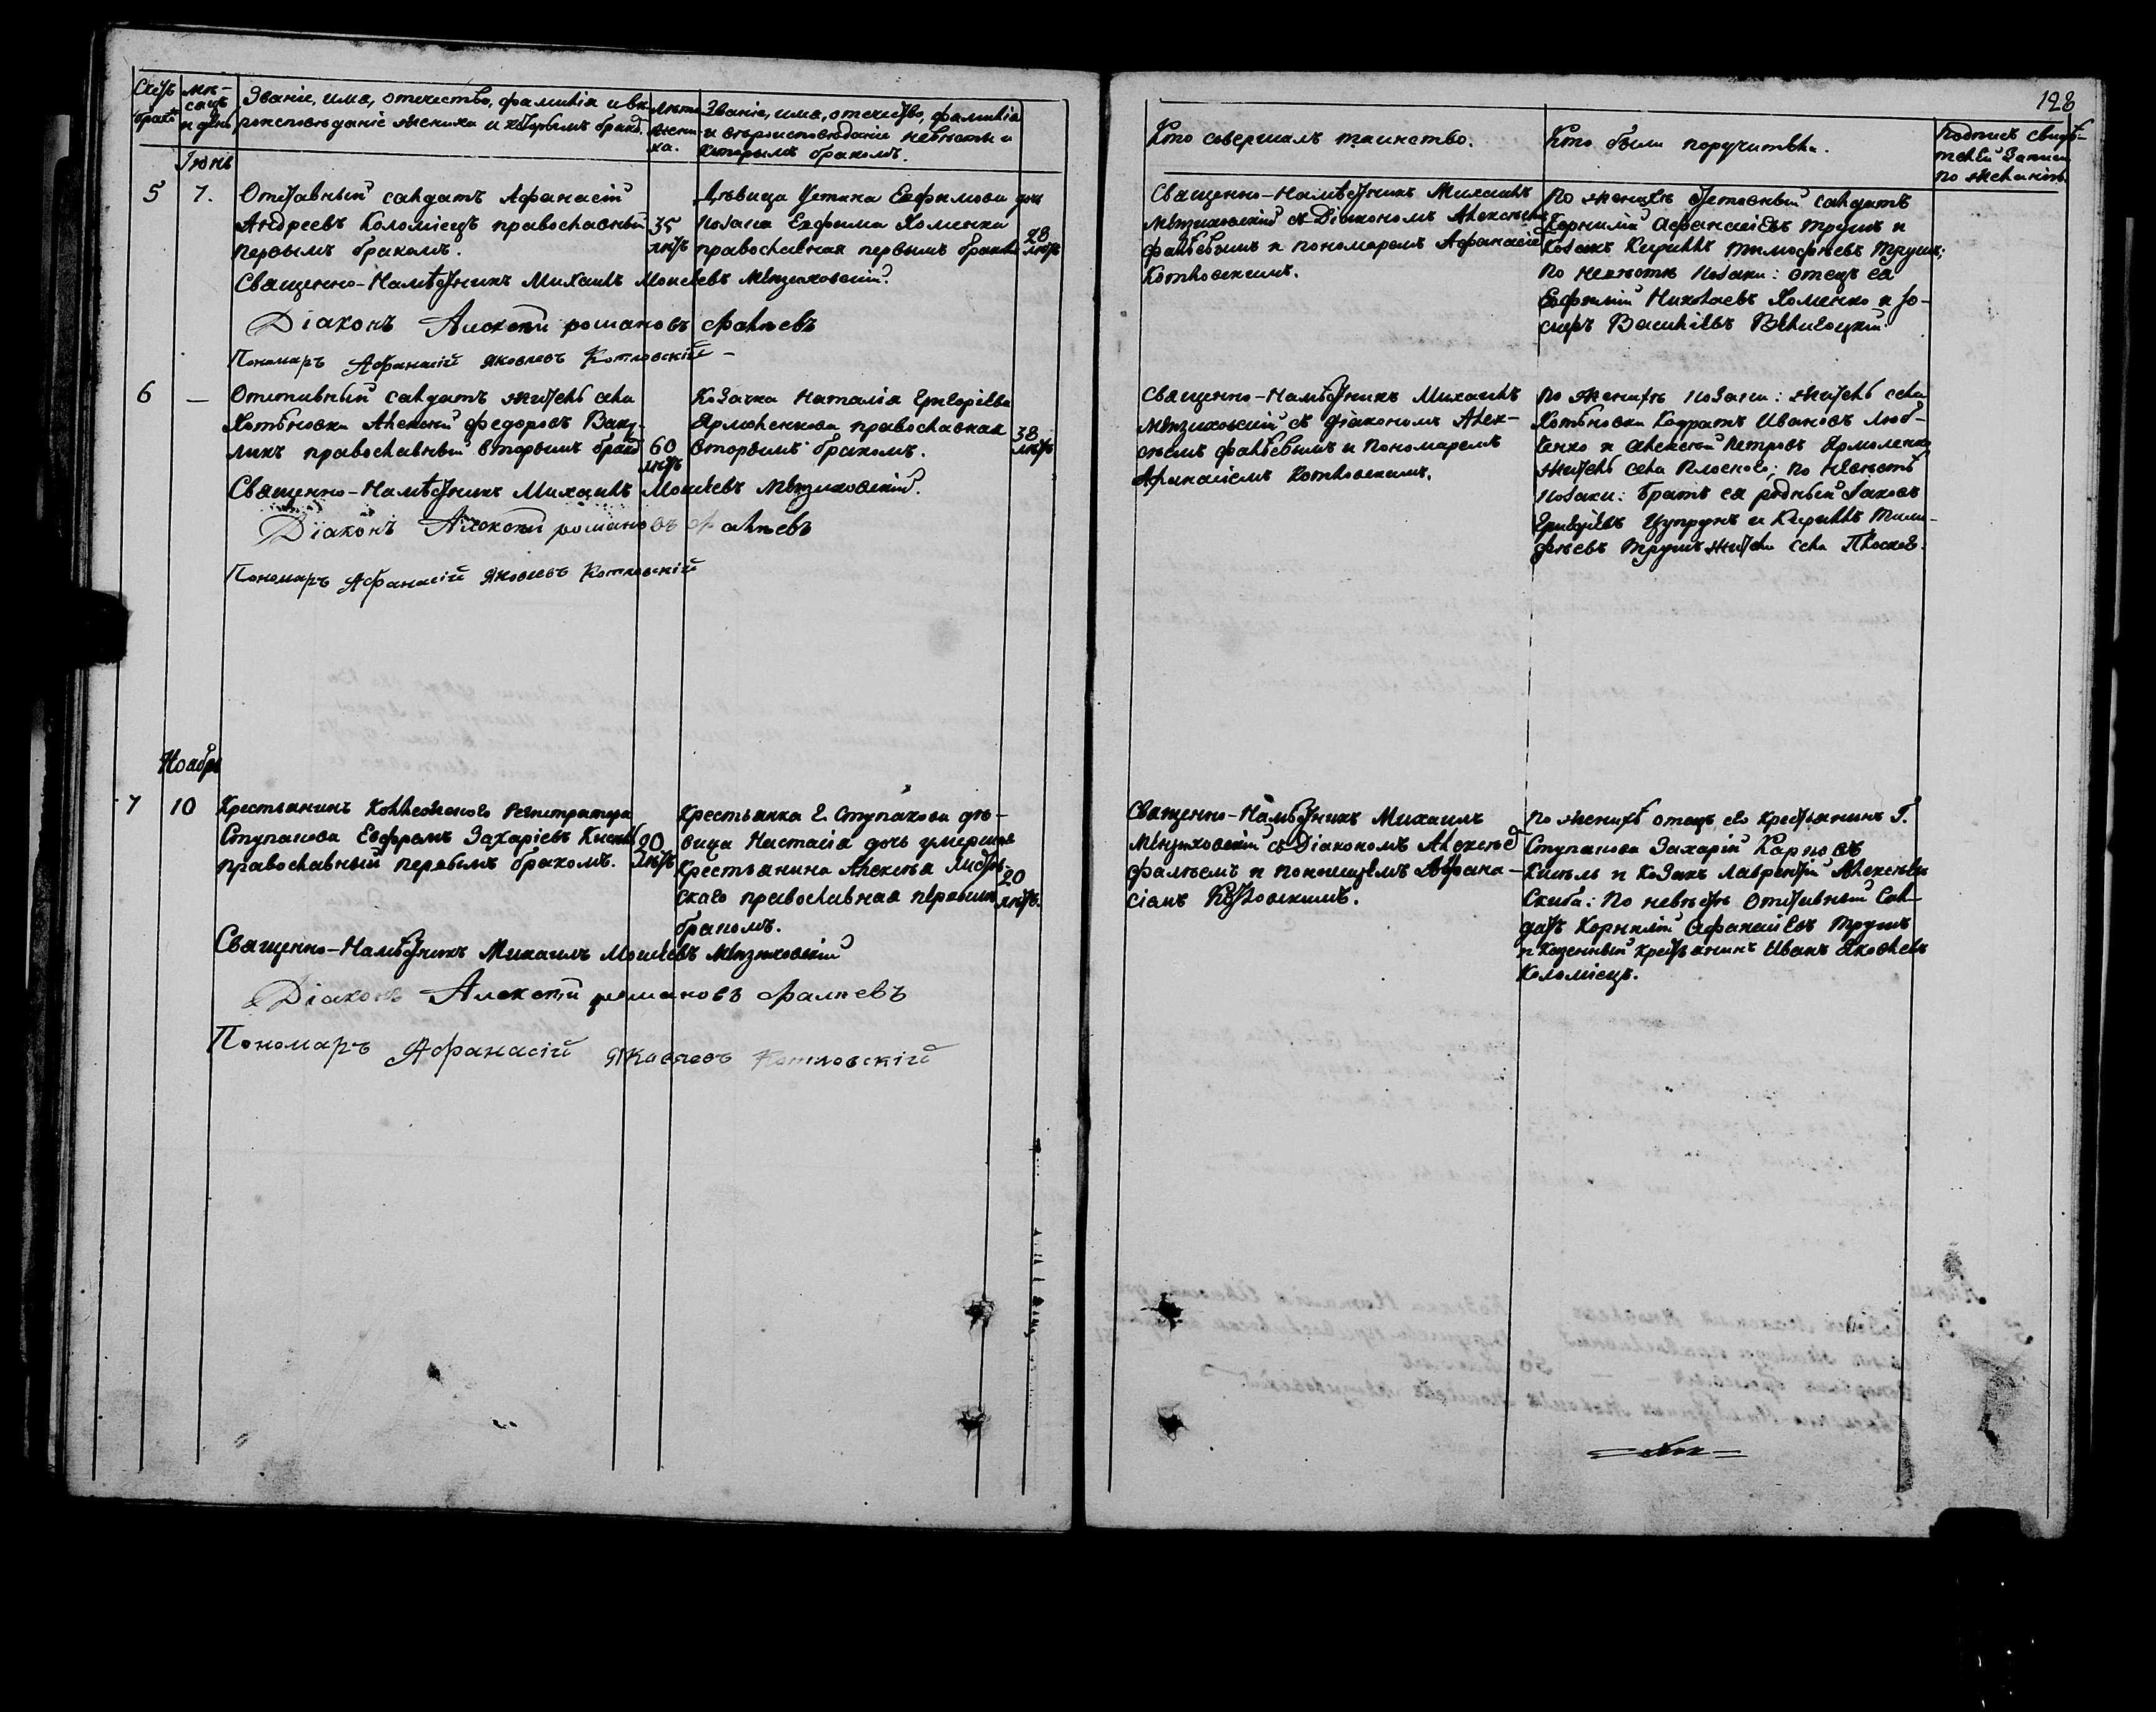 Счетъ браковъ
мѣ-
сяцъ
и день
Званіе, имя, отечество, фамилія и вѣ
роисповѣданіе жениха и которымъ брако.
Лѣта
жени
ха.
Званіе, имя, отечество, фамилія
и вѣроисповѣданіе невѣсты и
которымъ бракомъ.
Іюнь
5 7. Отставный салдатъ Афанасій
Андреевъ Коломіецъ православный
первымъ бракомъ.
35
лѣтъ
Дѣвица Устина Евфимова дочь
козака Евфима Хоменка
православная первымъ бракомъ
28
лѣтъ
Священно-Намѣстникъ Михаилъ Моисеевъ
Діаконъ Алексѣй романовъ Фалѣевъ
Пономаръ Афанасій Яковлевъ Котловскій
6 — Отставный салдатъ житель села
Хотѣновки Алексѣй Федоровъ Ваку-
ликъ православный вторымъ брако
60
лѣтъ
Козачка Наталія Григоріева
Ярмоленкова православная
вторымъ бракомъ.
38
лѣтъ
Священно-Намѣстникъ Михаилъ Моисеевъ
Діаконъ Алексѣй романовъ Фалѣевъ
Пономаръ Афанасій Яковлевъ Котловскій
Ноябрь
7 10 Крестьянинъ Коллежского Регистратора
Ступакова Евфремъ Захаріевъ
православный первымъ бракомъ.
20
лѣтъ
Крестьянка Г. Ступакова дѣ-
вица Настасія дочь умершаго
крестьянина Алексѣя
скаго православная первымъ
бракомъ.
20
лѣтъ.
Священно-Намѣстникъ Михаилъ Моисеевъ
Діаконъ Алексѣй романовъ Фалѣевъ
Пономаръ Афанасій Яковлевъ Котловскій
128
Кто совершалъ таинство.
Кто были поручители.
Подпись свидѣ-
телей записи
по желанію.
Священно-Намѣстникъ Михаилъ
съ Діакономъ Алексѣемъ
Фалѣевымъ и пономаремъ Афанасіемъ
Котловскимъ.
По женихѣ отставный салдатъ
Корнилій Афанасіевъ Трушъ и
козакъ Кириллъ Тимофѣевъ Трушъ;
по невѣстѣ козаки: отецъ ея
Евфимій Николаевъ Хоменко и Іо-
сифъ Василіевъ
Священно-Намѣстникъ Михаилъ
съ діакономъ Алек-
сѣемъ Фалѣевымъ и Пономаремъ
Афанасіемъ Котловскимъ.
По женихѣ козаки: житель села
Хотѣновки Кодратъ Ивановъ Люб-
ченко и Алексѣй Петровъ Ярмоленко
житель села Плоского; по невѣстѣ
козаки: братъ ея родный Іаковъ
Григоріевъ Цупрунъ и Кириллъ Тимо-
фѣевъ Трушъ жители села Плоского.
Священно-Намѣстникъ Михаилъ
съ Діакономъ Алексѣемъ
Фалѣемъ и пономаремъ Афана-
сіемъ Котловскимъ.
По женихѣ отецъ его крестьянинъ Г.
Ступакова Захарій Карповъ
Кисель и козакъ Лаврентій Алексѣевъ
Скиба: По невѣстѣ Отставный Сал-
датъ Корнилій Афанасіевъ Трушъ
и казенный крестьянинъ Иванъ Яковлевъ
Коломіецъ.